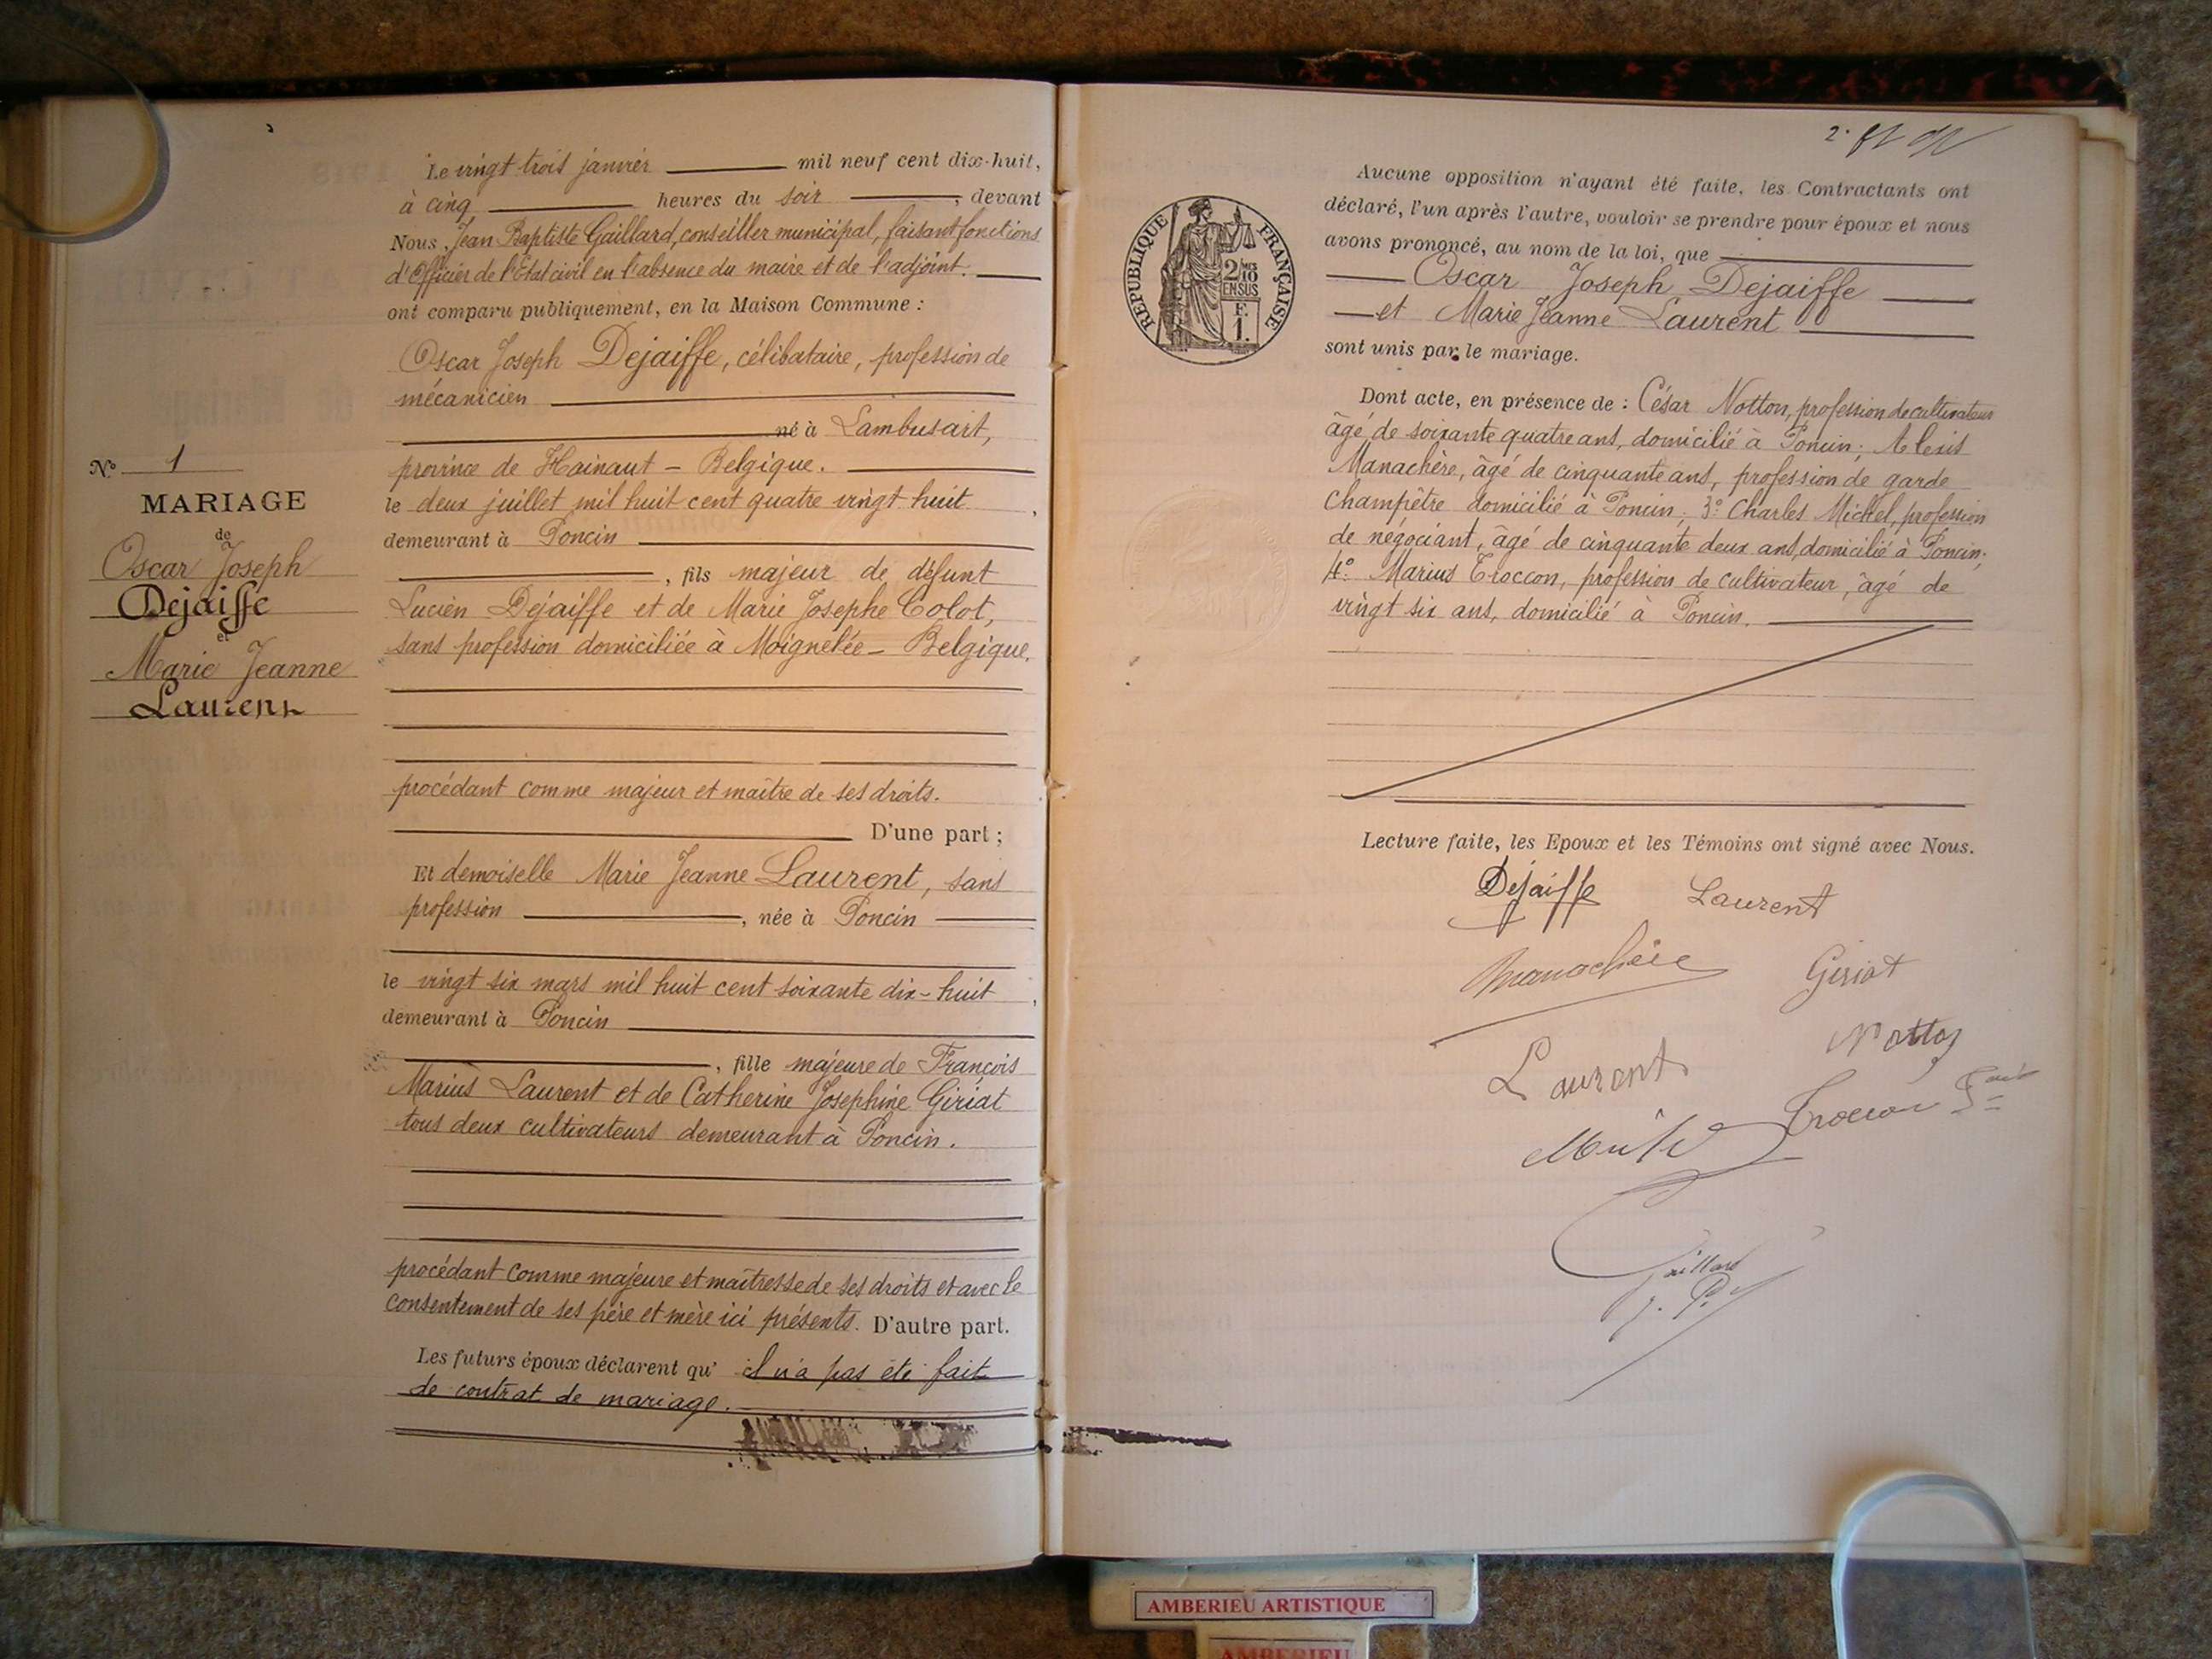 Le vingt trois janvier mil neuf cent dix-huit,
à cinq heures du soir, devant
Nous, Jean Baptiste Gaillard, conseiller municipal, faisant fonctions
d'Officier de l'Etat civil en l'absence du maire et de l'adjoint.
ont comparu publiquement, en la Maison Commune :
Oscar Joseph Dejaiffe, célibataire, profession de
mécanicien
né à Lambusart,
province de Hainaut - Belgique.
le deux juillet mil huit cent quatre vingt huit,
demeurant à Poncin
, fils majeur de défunt
Lucien Dejaiffe et de Marie Josephe Colot,
sans profession domiciliée à Moignelée - Belgique.
procédant comme majeur et maître de ses droits.
D'une part ;
Et demoiselle Marie Jeanne Laurent, sans
profession, née à Poncin
le vingt six mars mil huit cent soixante dix-huit,
demeurant à Poncin
, fille majeure de François
Marius Laurent et de Catherine Josephine Giriat
tous deux cultivateurs demeurant à Poncin.
procédant comme majeure et maîtresse de ses droits et avec le
consentement de ses père et mère ici présents. D'autre part.
Les futurs époux déclarent qu' il n'a pas été fait
de contrat de mariage.
N° 1
MARIAGE
de
Oscar Joseph
Dejaiffe
et
Marie Jeanne
Laurent
REPUBLIQUE FRANÇAISE
2/10
EN SUS
F.
1.
Aucune opposition n'ayant été faite, les Contractants ont
déclaré, l'un après l'autre, vouloir se prendre pour époux et nous
avons prononcé, au nom de la loi, que
Oscar Joseph Dejaiffe
et Marie Jeanne Laurent
sont unis par le mariage.
Dont acte, en présence de : César Notton, profession de cultivateur
âgé de soixante quatre ans, domicilié à Poncin; Alexis
Manachère, âgé de cinquante ans, profession de garde
champêtre domicilié à Poncin; 3° Charles Michel, profession
de négociant, âgé de cinquante deux ans, domicilié à Poncin;
4° Marius Troccon, profession de cultivateur, âgé de
vingt six ans, domicilié à Poncin.
Lecture faite, les Epoux et les Témoins ont signé avec Nous.
Dejaiffe Laurent
Manachère Giriat
Laurent Notton
Troccon
Gaillard
J. P.
AMBERIEU ARTISTIQUE
AMBERIEU